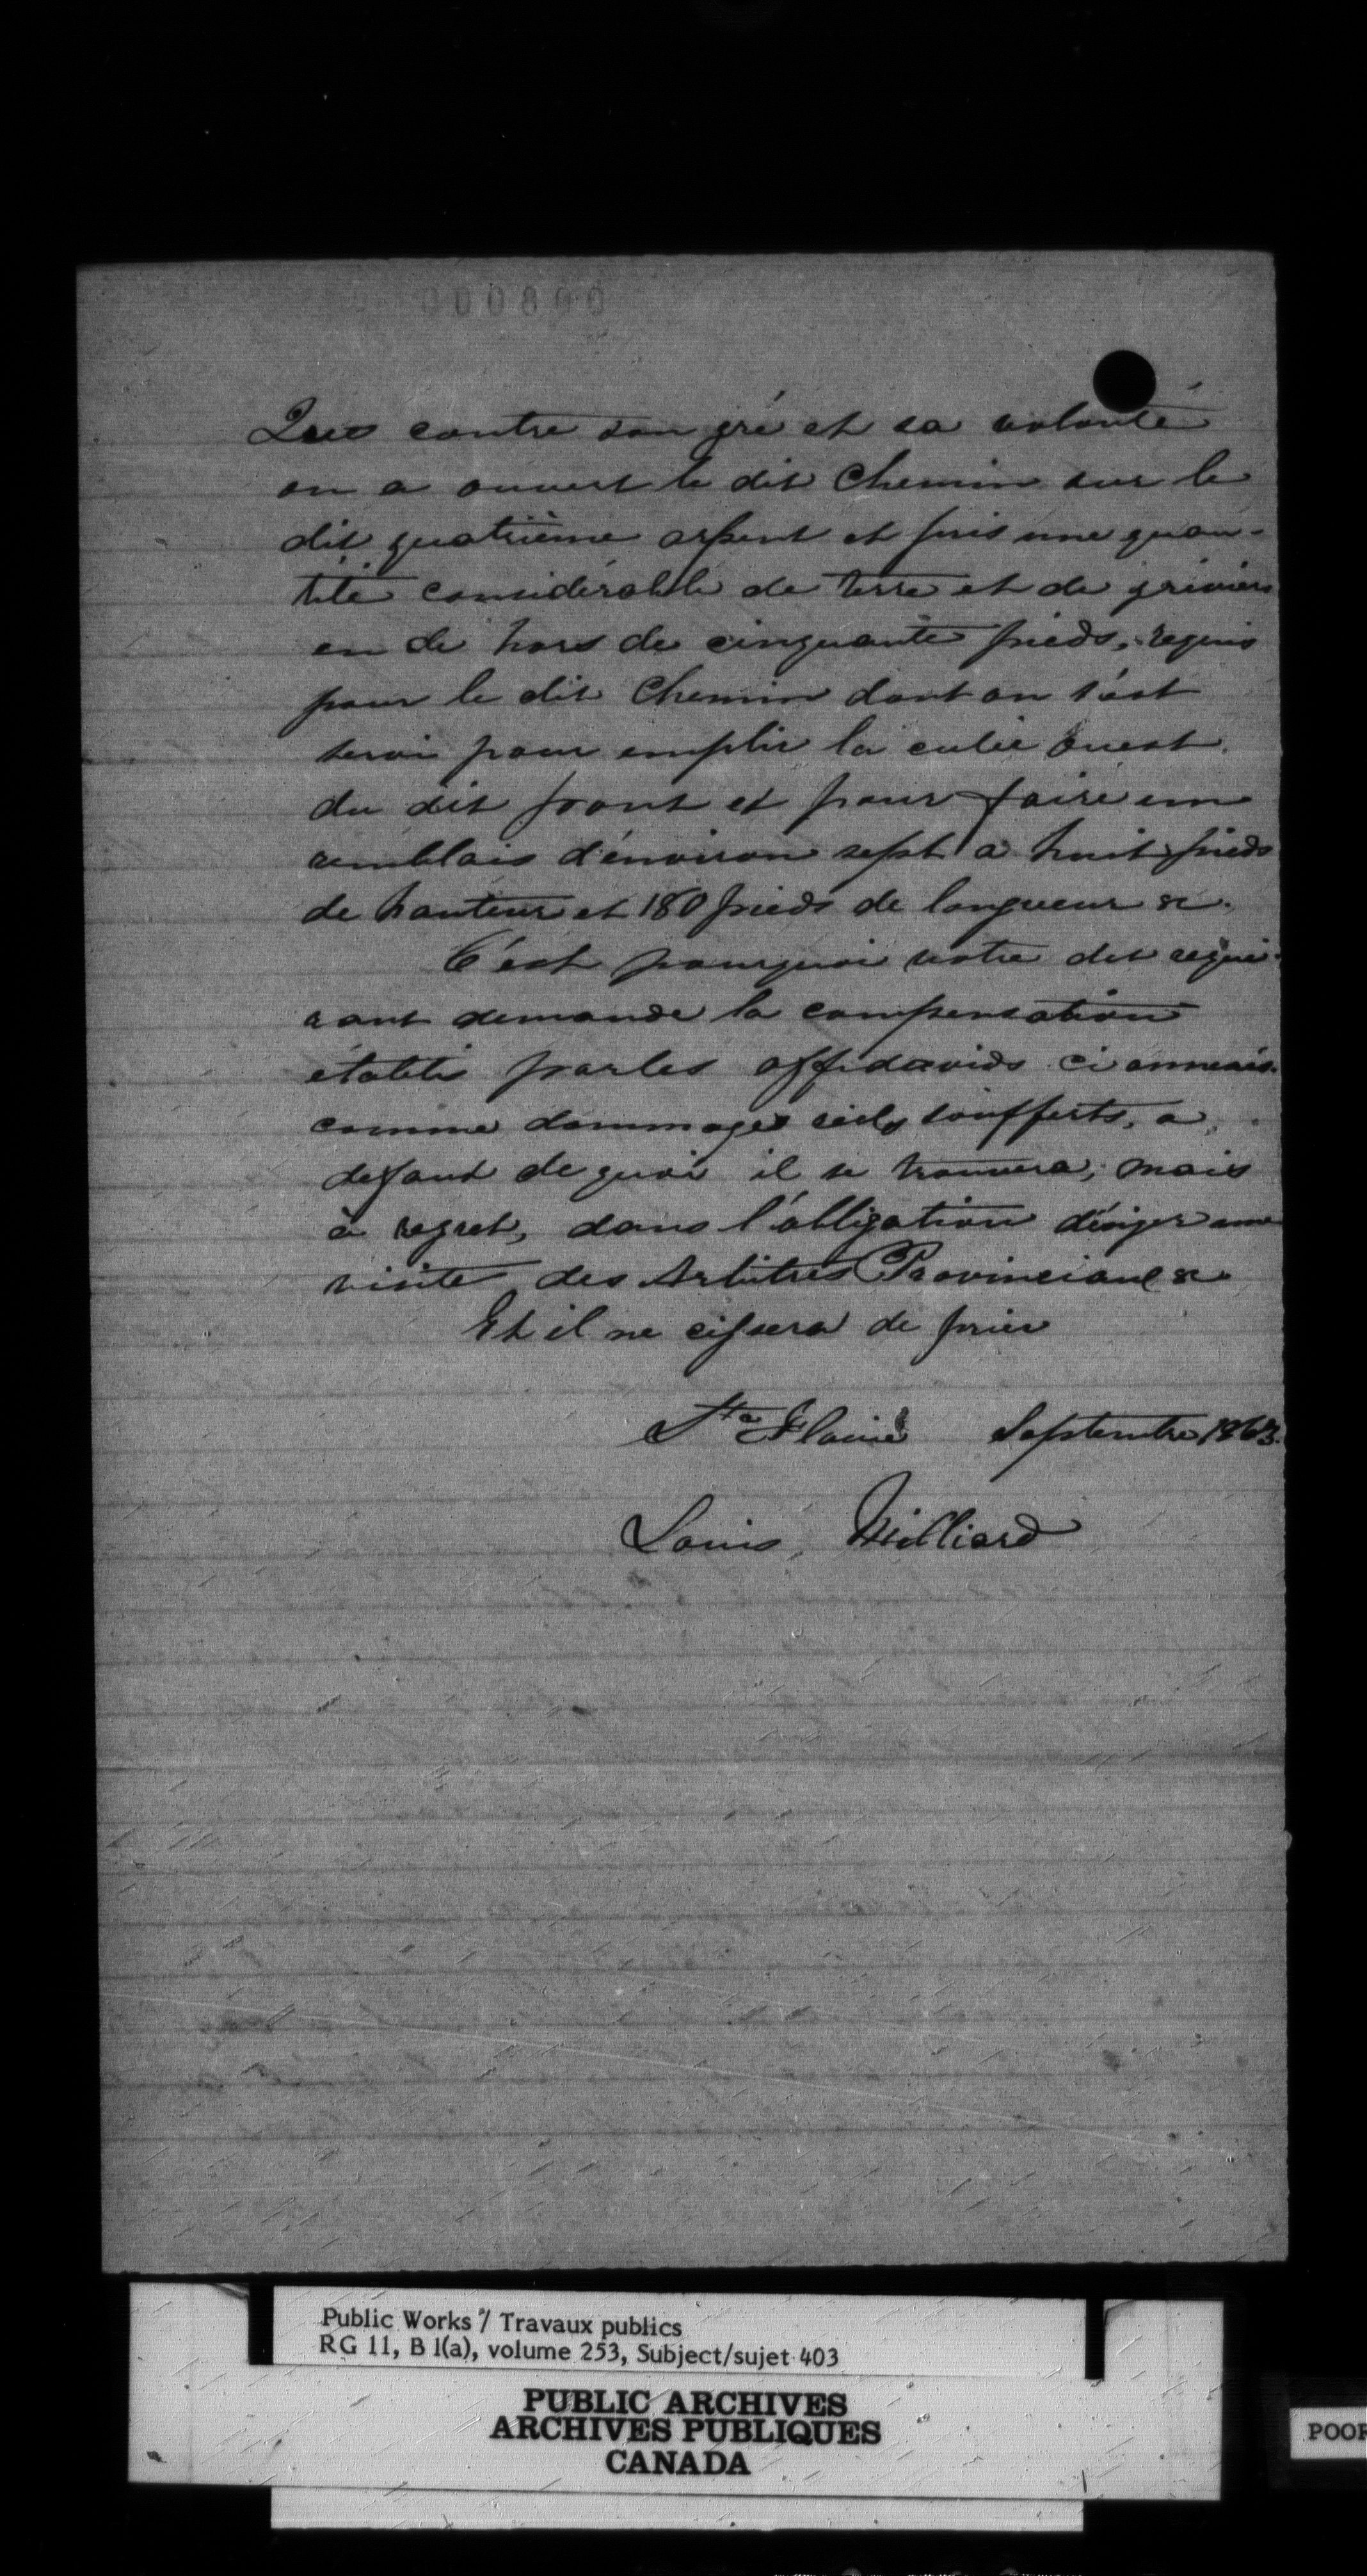 000800
Que contre son gré et sa volonté
on a ouvert le dit Chemin sur le
dit quatrième arpent et pris une quan-
tité considérable de terre et de graviers
en de hors de cinquante pieds, requis
pour le dit Chemin dont on s'est
servi pour emplir la culée ouest
du dit pont et pour faire un
remblais d'environ sept a huit pieds
de hauteur et 180 pieds de longueur &c.
C'est pourquoi votre dit requé-
rant demande la compensation
établis par les affidavids ci annexés
comme dommages réels soufferts, a
defaut de quoi il se trouvera, mais
à regret, dans l'obligation d'éxiger une
visite des Arbitres Provinciaux &c
Et il ne cessera de prier
Ste Flavie Septembre 1863.
Louis Milliard
Public Works / Travaux publics
RG 11, B 1(a), volume 253, Subject/sujet 403
PUBLIC ARCHIVES
ARCHIVES PUBLIQUES
CANADA
POOR